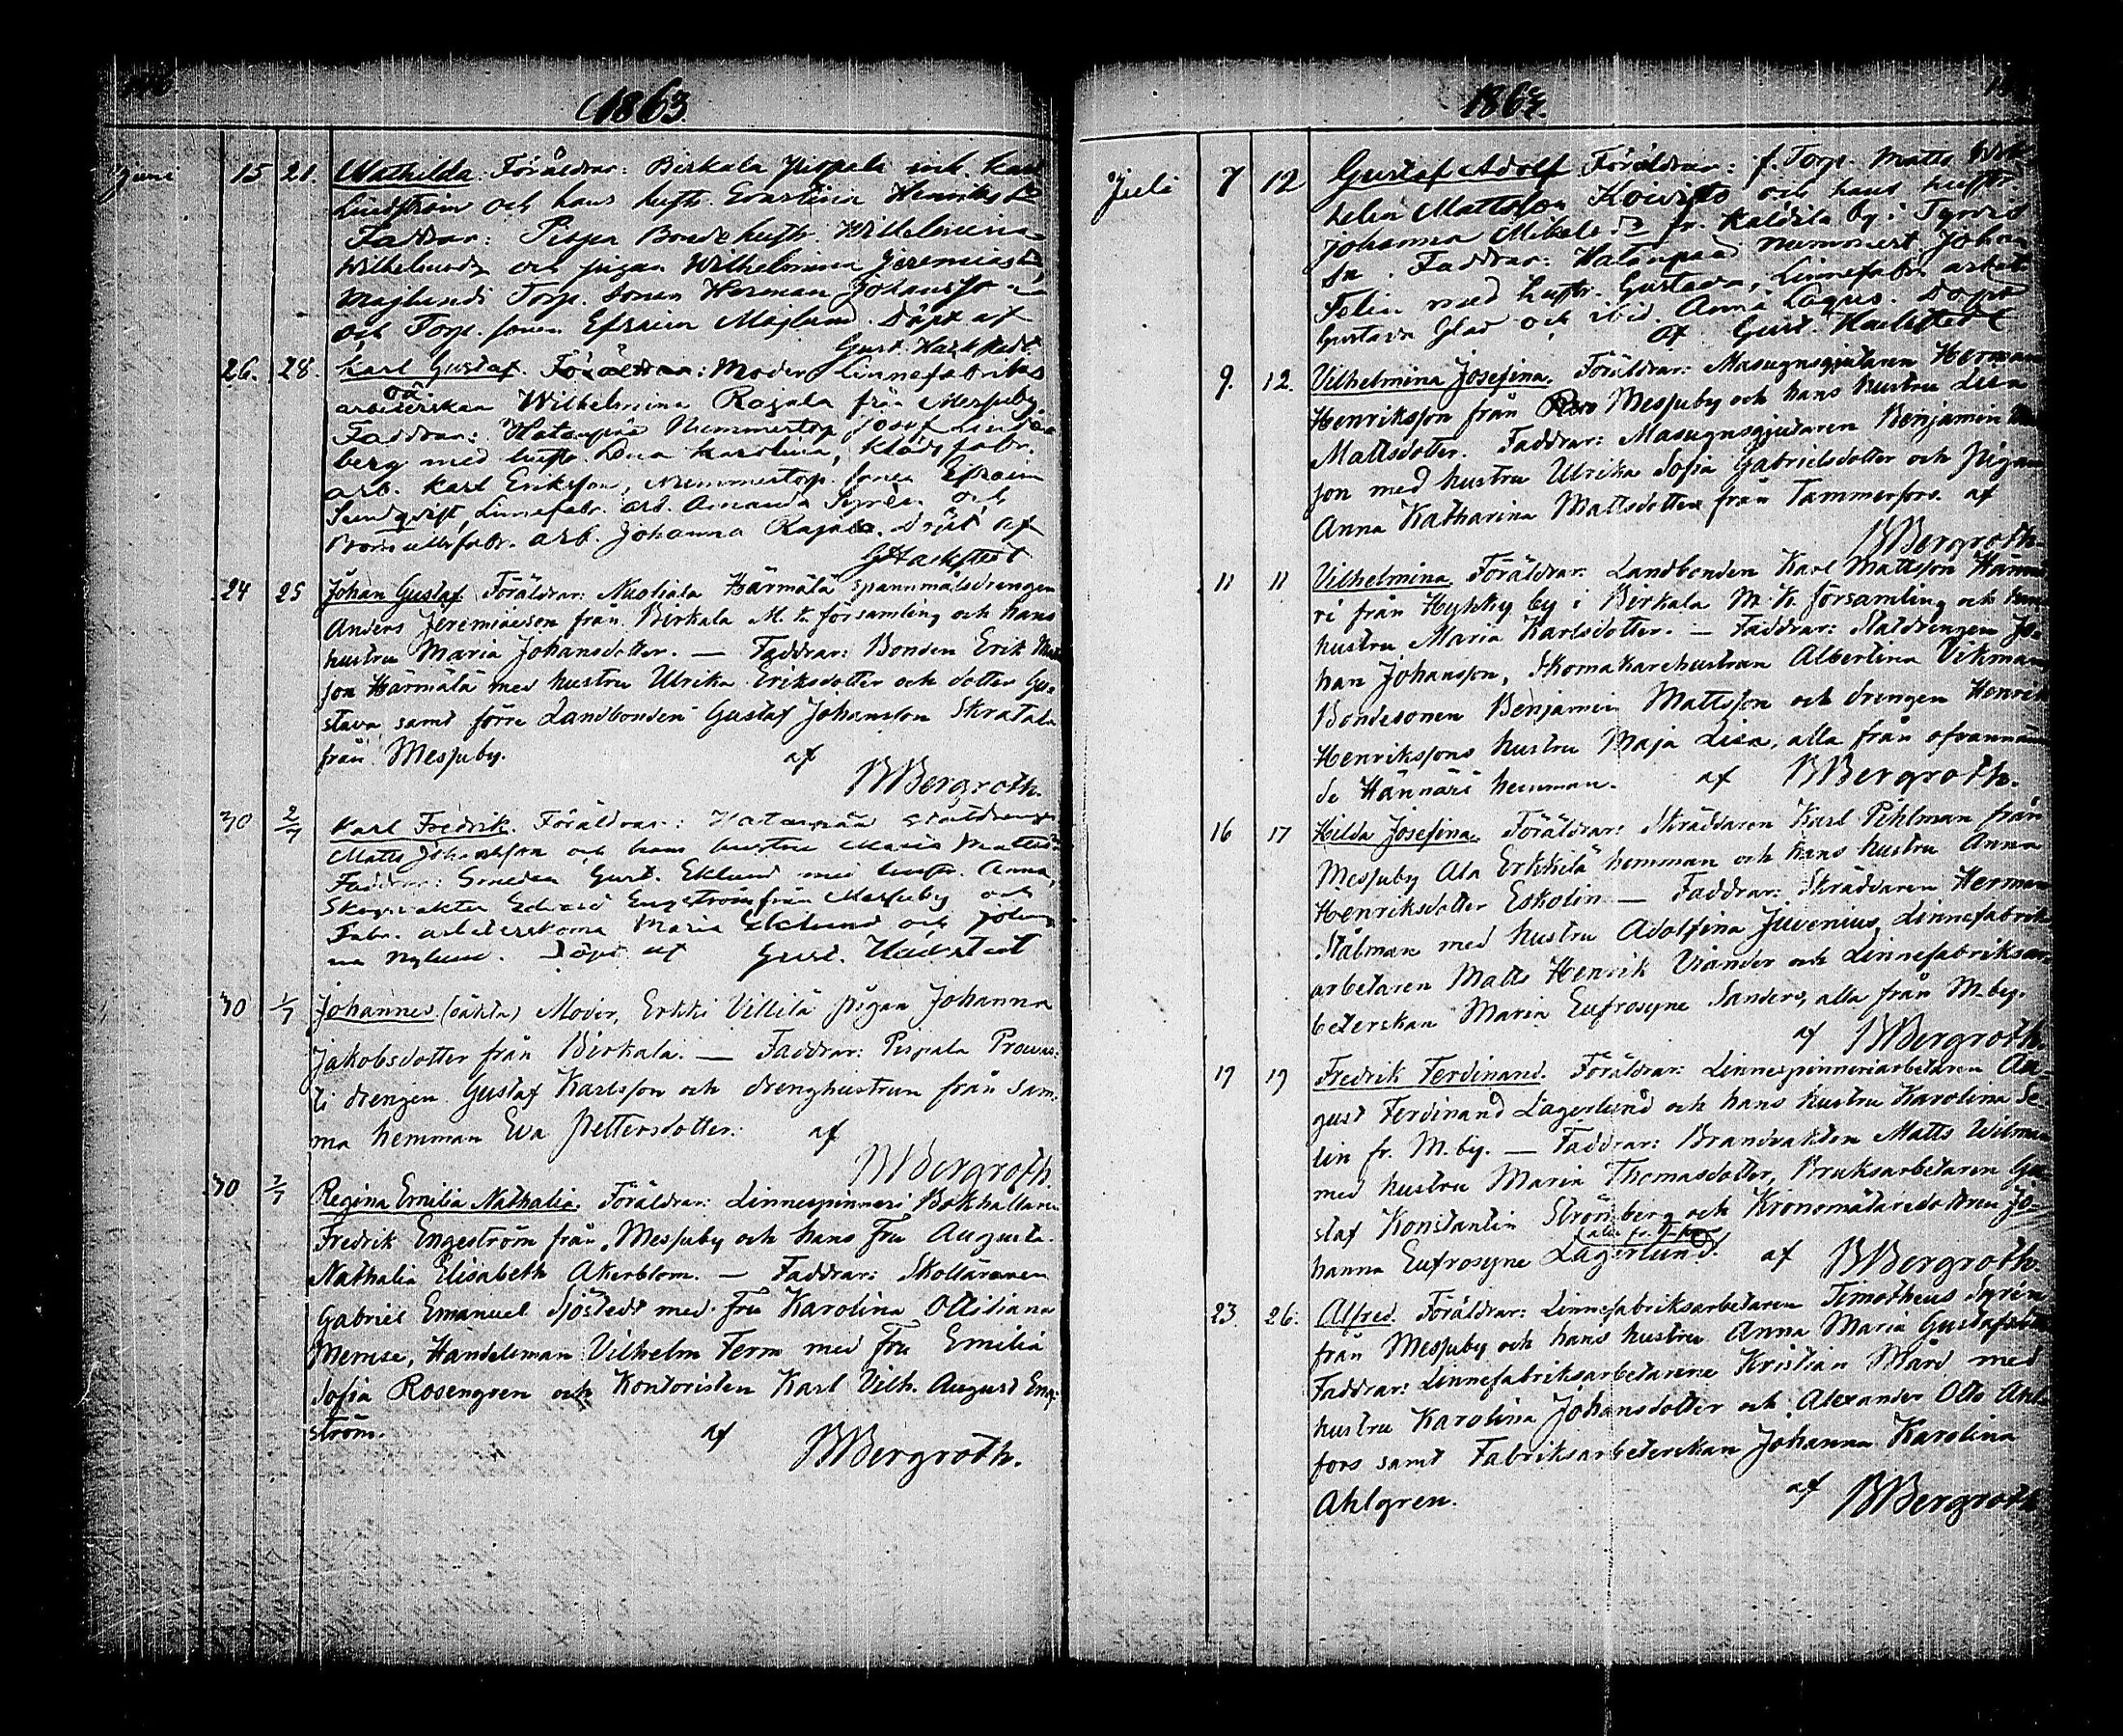 1863
Juni 15 21. Mathilda. Föräldrar: Birkala Pispala inh. Karl
Lindström och hans hustr. Ernstina Henriksdr
Faddrar: Pispa Bonde hustr. Wilhelmina
Wilhelmsdr och pigan Wilhelmina Jeremiasdr,
Majlunds Torp. sonen Herman Johansson
och Torp. sonen Efraim Majlund. Döpt af
Gust. Hackstedt.
26. 28. Karl Gustaf. Föräldrar: Moder Linnefabriks
oä
arbeterskan Wilhelmina Ragala från Messuby.
Faddrar: Hatanpää Nummertorp. Josef Lind
berg med hustr. Lena Karolina, Klädsfabr.
arb. Karl Eriksson, Nummertorp. sonen Efraim
Sundqvist, Linnefabr. arb. Amanda Syrén och
Bomullsfabr. arb. Johanna Ragala. Döpt af
GHackstedt
24 25 Johan Gustaf. Föräldrar: Härmälä spannmålsdrengen
Anders Jeremiaeson från Birkala M. k. församling och hans
hustru Maria Johansdotter. — Faddrar: Bonden Erik Matts
son Härmälä med hustru Ulrika Eriksdotter och dotter Gu-
stava samt förre Landbonden Gustaf Johansson Skratala
från Messuby. af
BBergroth.
30 2/7 Karl Fredrik. Föräldrar: Hatanpää Staldrengen
Matts Johansson och hans hustru Maria Mattsdr
Faddrar: Smeden Gust. Eklund med hustr. Anna,
Skogsvakten Edvard Engström från Messuby och
Fabr. arbeterskorna Maria Eklund och Johan
na Nylund. Döpt af Gust. Hackstedt
30 1/7 Johannes (oäkta) Moder, Erkki Villilä pigan Johanna
Jakobsdotter från Birkala. — Faddrar: Pispala Prowas-
ti drengen Gustaf Karlsson och drenghustrun från sam-
ma hemman Eva Pettersdotter. af
BBergroth.
30 7/7 Regina Emilia Nathalia. Föräldrar: Linnespinneri Bokhållaren
Fredrik Engeström från Messuby och hans Fru Augusta
Nathalia Elisabeth Akerblom. — Faddrar: Skolläraren
Gabriel Emanuel Sjöstedt med fru Karolina Ottiliana
Merese, Handelsman Vilhelm Ferm med Fru Emilia
Sofia Rosengren och Kontoristen Karl Vilh. August Eng-
ström. af BBergroth.
186
Juli 7 12 Gustaf Adolf Föräldrar: f. Torp. Matts
helm Mattsson Koivisto och hans hustr.
Johanna Mikelsdr fr. Kaldila by i Tyrvis
sn. Faddrar: Hatanpää nummert. Johan
Felin med hustr. Gustava, Linnefabr. arbet.
Gustava Glad och ibid. Anna Lagus. Döpt
af Gust. Hackstedt
9. 12. Vilhelmina Josefina. Föräldrar: Masugnsgjutaren Herman
Henriksson från Messuby och hans hustru Lisa
Mattsdotter. Faddrar: Masugnsgjutaren Benjamin
son med hustru Ulrika Sofia Gabrielsdotter och Pigan
Anna Katharina Mattsdotter från Tammerfors. af
BBergroth.
11 11 Vilhelmina. Föräldrar: Landbonden Karl Mattsson Hänne-
ri från Hyhky by i Birkala M. k. församling och hans
hustru Maria Karlsdotter. — Faddrar: Staldrengen Jo-
han Johansson, Skomakarehustrun Albertina Vikman
Bondesonen Benjamin Mattsson och drengen Henrik
Henrikssons hustru Maja Lisa, alla från ofvannäm
de Hännäri hemman. af BBergroth.
16 17 Hilda Josefina. Föräldrar: Skräddaren Karl Pihlman från
Messuby Ala Erkkilä hemman och hans hustru Anna
Henriksdotter Eskolin. — Faddrar: Skräddaren Herman
Stålman med hustru Adolfina Juvenius, Linnefabriks
arbetaren Matts Henrik Viander och Linnefabriksar-
beterskan Maria Eufrosyne Sanders, alla från M-by.
af BBergroth.
19 19 Fredrik Ferdinand. Föräldrar: Linnespinneriarbetaren Au-
gust Ferdinand Lagerlund och hans hustru Karolina Se-
lin fr. M-by. — Faddrar: Brandvakten Matts Wilman
med hustru Maria Thomasdotter, Bruksarbetaren Gu-
staf Konstantin Strömberg och Kronomätaredottren Jo-
(alla fr.
hanna Eufrosyne Lagerlund. af BBergroth.
23. 26. Alfred. Föräldrar: Linnefabriksarbetaren Timotheus Syrén
från Messuby och hans hustru Anna Maria Gustafsdtr
Faddrar: Linnefabriksarbetarene Kristian Mård med
hustru Karolina Johansdotter och Alexander Otto Ahl-
fors samt Fabriksarbeterskan Johanna Karolina
Ahlgren. af BBergroth